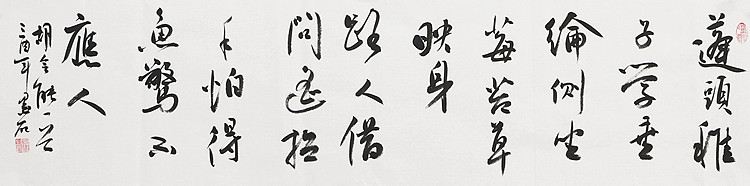 蓬頭稚
子學垂
綸側坐
莓苔草
映身
路人借
問遙招
手怕得
魚驚不
應人
胡令能一首
酉年